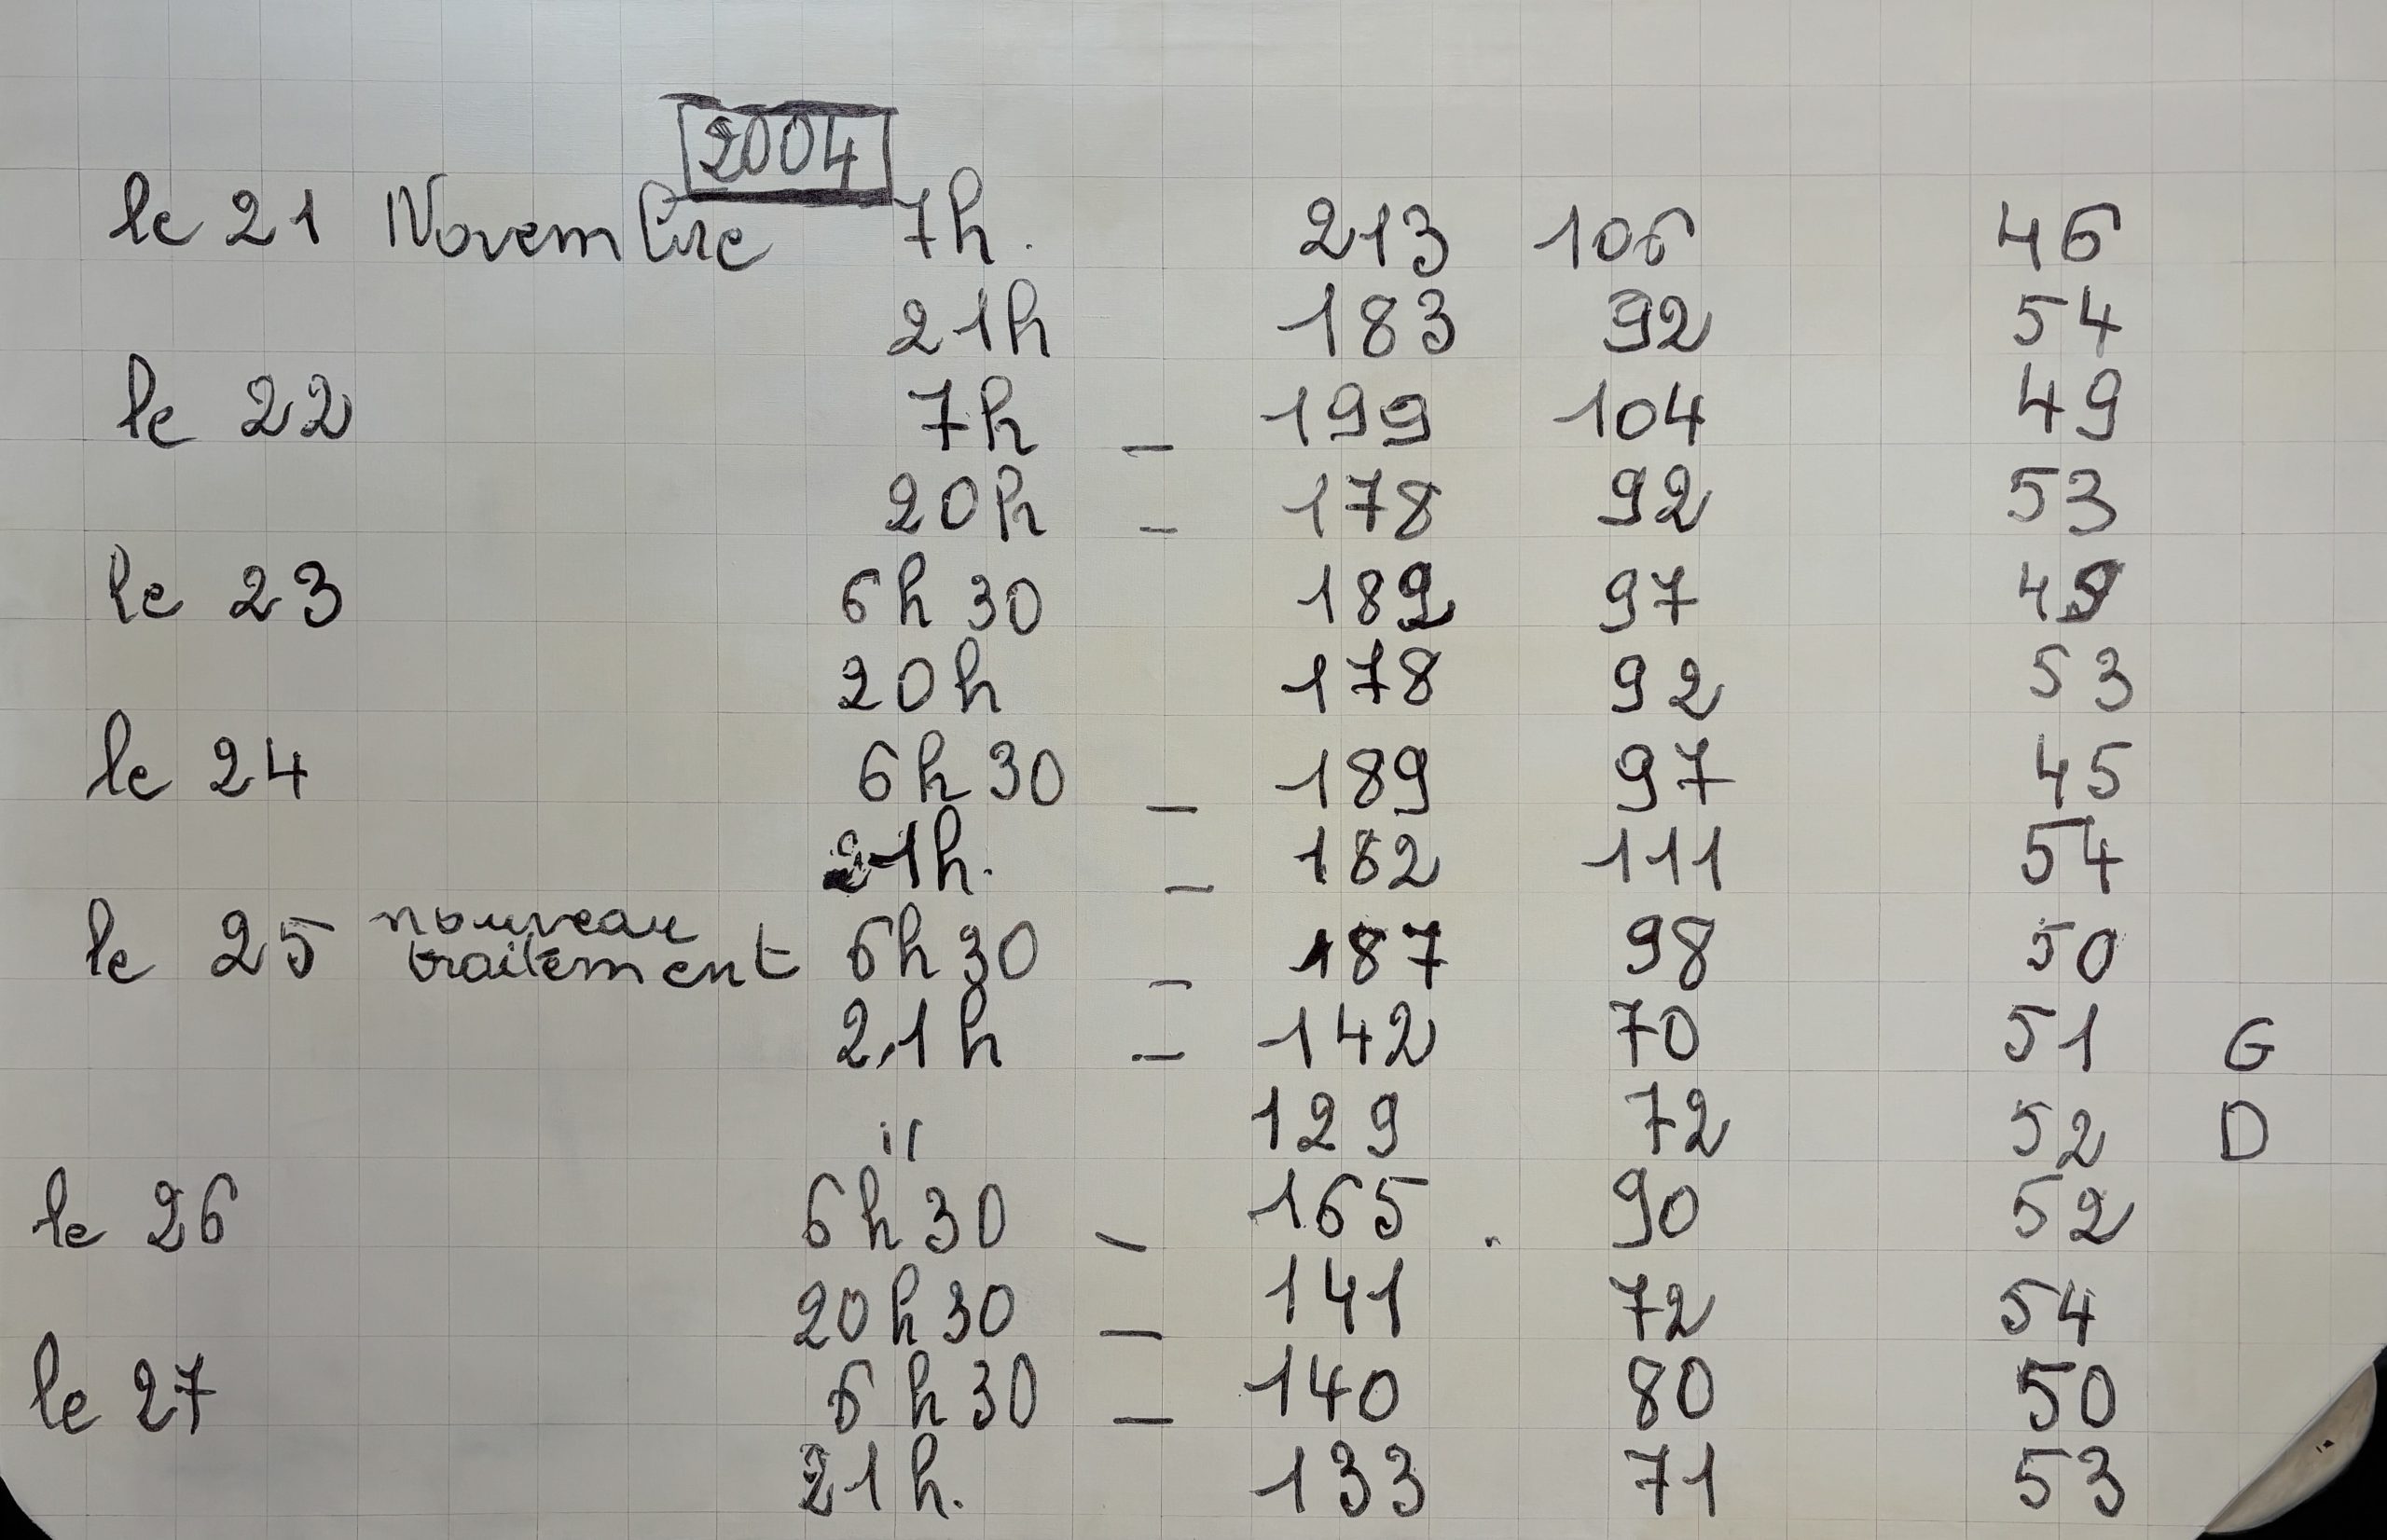 2004
le 21 Novembre 7h. 213 106 46
21h 183 92 54
le 22 7h - 199 104 49
20h - 178 92 53
le 23 6h30 189 97 49
20h 178 92 53
le 24 6h30 - 189 97 45
21h. - 182 111 54
le 25 nouveau traitement 6h30 - 187 98 50
21h - 142 70 51 G
" 129 72 52 D
le 26 6h30 - 165 . 90 52
20h30 - 141 72 54
le 27 6h30 - 140 80 50
21h. 133 71 53